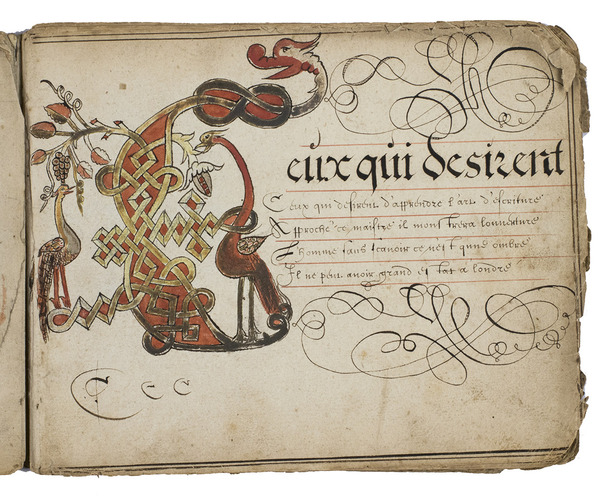 Ceux qui desirent
Ceux qui desirent d'apprendre l'art d'escriture
Approche ce maistre il monstrera louuerture
Lhomme sans scauoir ce nest qune ombre
Il ne peut auoir grand estat a londre
C c c